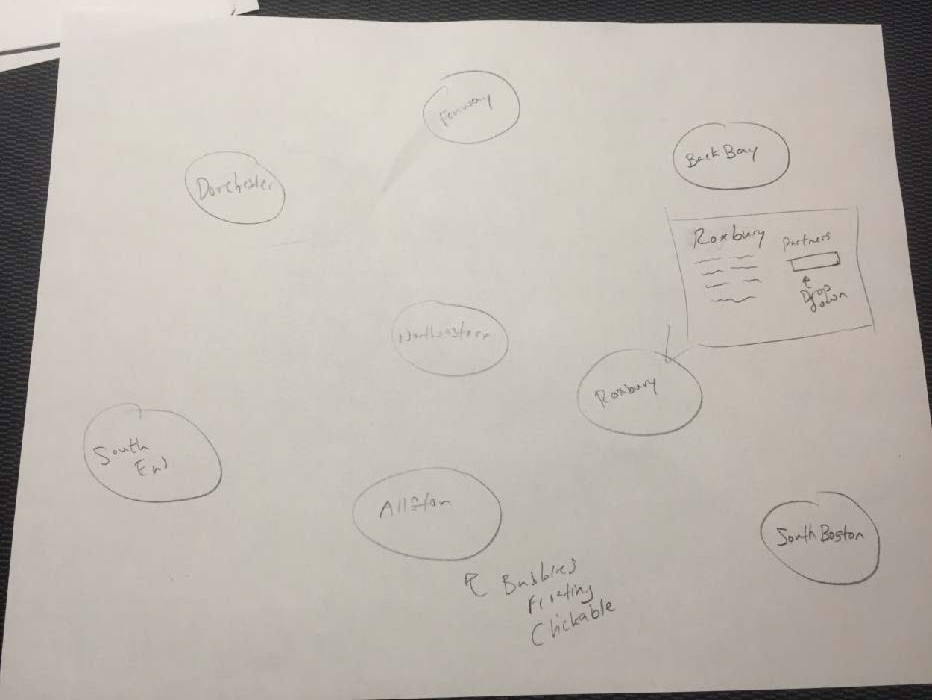 Fenway
Back Bay
Dorchester
Roxbury
Partners
Drop
down
Northeastern
Roxbury
South
End
Allston
South Boston
Bubbles
Floating
Clickable